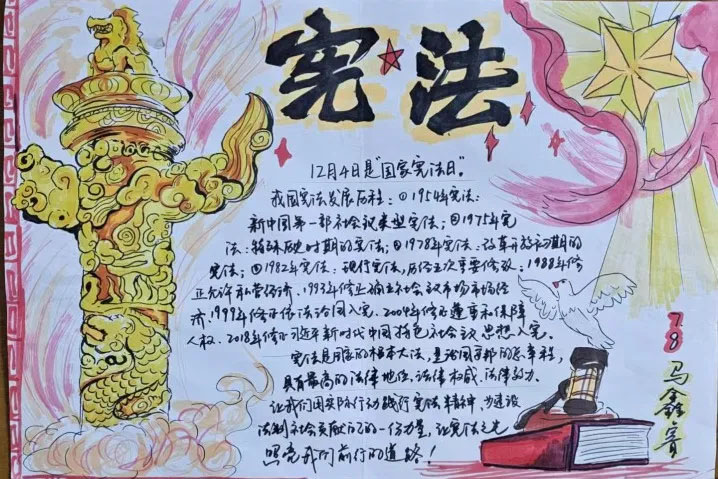 宪法
12月4日是"国家宪法日"。
我国宪法发展历程:①1954年宪法:
新中国第一部社会议来型宪法;②1975年宪
法:特殊历史时期的宪法;③1978年宪法:改革开放初期的
宪法;④1982年宪法:现行宪法,历经五次重要修改:1988年修
正允许私营经济、1993年修正确立社会议市场市场经
济,1999年修正依法治国入宪。2004年修正尊重和保障
人权、2018年修正习近平新时代中国特色社会议思想入宪。
宪法是国家的根本大法,是治国安邦的总章程,
具有最高的法律地位、法律权威、法律效力。
让我们用实际行动践行宪法精神,为建设
法制社会贡献自己的一份力量,让宪法之光
照亮我们前行的道路!
7.8
马鑫